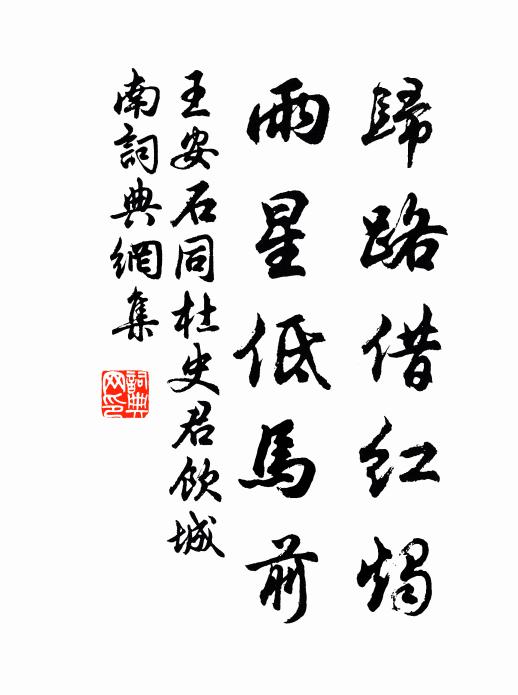 歸路借紅燭
雨星低馬前
王安石同杜史君飲城
南詞典網集
詞典
网印